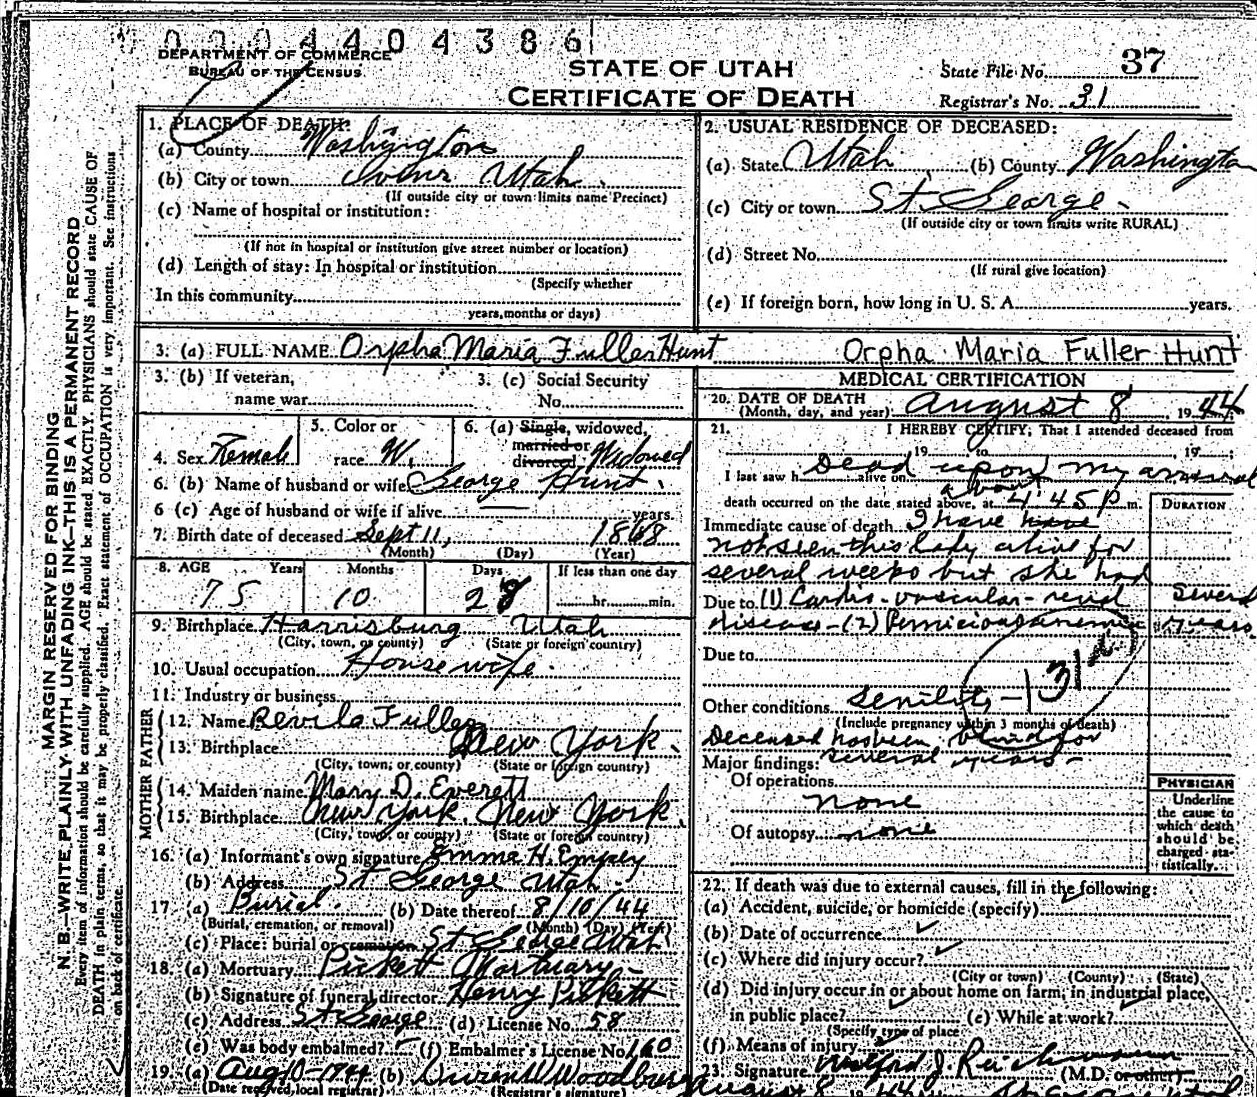 0004404386
DEPARTMENT OF COMMERCE
BUREAU OF THE CENSUS
STATE OF UTAH
CERTIFICATE OF DEATH
State File No. 37
Registrar's No. 31
MARGIN RESERVED FOR BINDING
N. B.—WRITE PLAINLY WITH UNFADING INK—THIS IS A PERMANENT RECORD
Every item of information should be carefully supplied. AGE should be stated EXACTLY. PHYSICIANS should state CAUSE OF
DEATH in plain terms, so that it may be properly classified. Exact statement of OCCUPATION is very important. See instructions
on back of certificate.
1. PLACE OF DEATH:
(a) County Washington
(b) City or town Ivins Utah.
(If outside city or town limits name Precinct)
(c) Name of hospital or institution:
(If not in hospital or institution give street number or location)
(d) Length of stay: In hospital or institution
(Specify whether
In this community
years, months or days)
2. USUAL RESIDENCE OF DECEASED:
(a) State Utah (b) County Washington
(c) City or town St. George -
(If outside city or town limits write RURAL)
(d) Street No.
(If rural give location)
(e) If foreign born, how long in U. S. A. years.
3. (a) FULL NAME Orpha Maria Fuller Hunt Orpha Maria Fuller Hunt
3. (b) If veteran,
name war
3. (c) Social Security
No.
4. Sex Female
5. Color or
race W.
6. (a) Single, widowed,
married or
divorced Widowed
6. (b) Name of husband or wife George Hunt.
6 (c) Age of husband or wife if alive — years.
7. Birth date of deceased Sept 11, 1868
(Month) (Day) (Year)
8. AGE Years Months Days If less than one day
75 10 28 hr. min.
9. Birthplace Harrisburg Utah
(City, town, or county) (State or foreign country)
10. Usual occupation Housewife.
11. Industry or business
FATHER
12. Name Revilo Fuller
13. Birthplace New York.
(City, town, or county) (State or foreign country)
MOTHER
14. Maiden name Mary D. Everett
15. Birthplace New York. New York.
(City, town, or county) (State or foreign country)
16. (a) Informant's own signature Emma H. Empey
(b) Address St George Utah.
17. (a) Burial. (b) Date thereof 8/10/44
(Burial, cremation, or removal) (Month) (Day) (Year)
(c) Place: burial or cremation St. George Utah
18. (a) Mortuary Pickett Mortuary -
(b) Signature of funeral director Henry Pickett
(c) Address St George (d) License No. 58
(e) Was body embalmed? (f) Embalmer's License No. 160
19. (a) Aug 10-1944 (b) Woodbury
(Date received local registrar) (Registrar's signature)
MEDICAL CERTIFICATION
20. DATE OF DEATH
(Month, day, and year) August 8, 1944
21. I HEREBY CERTIFY; That I attended deceased from
19 to , 19 ;
I last saw h Dead upon my arrival alive on
death occurred on the date stated above, at about 4:45 P. m.
DURATION
Immediate cause of death I have have
not seen this lady alive for
several weeks but she had
Due to (1) Cardio-vascular-renal Several
disease - (2) Pernicious anemia years
Due to
Other conditions Senility - 131a
(Include pregnancy within 3 months of death)
Deceased has been blind for
Major findings: several years -
Of operations
none
Of autopsy none
PHYSICIAN
Underline
the cause to
which death
should be
charged sta-
tistically.
22. If death was due to external causes, fill in the following:
(a) Accident, suicide, or homicide (specify)
(b) Date of occurrence
(c) Where did injury occur?
(City or town) (County) (State)
(d) Did injury occur in or about home on farm, in industrial place,
in public place? (e) While at work?
(Specify type of place
(f) Means of injury
23. Signature Wilford J. Reichmann (M.D. or other)
August 8 1944 St George Utah